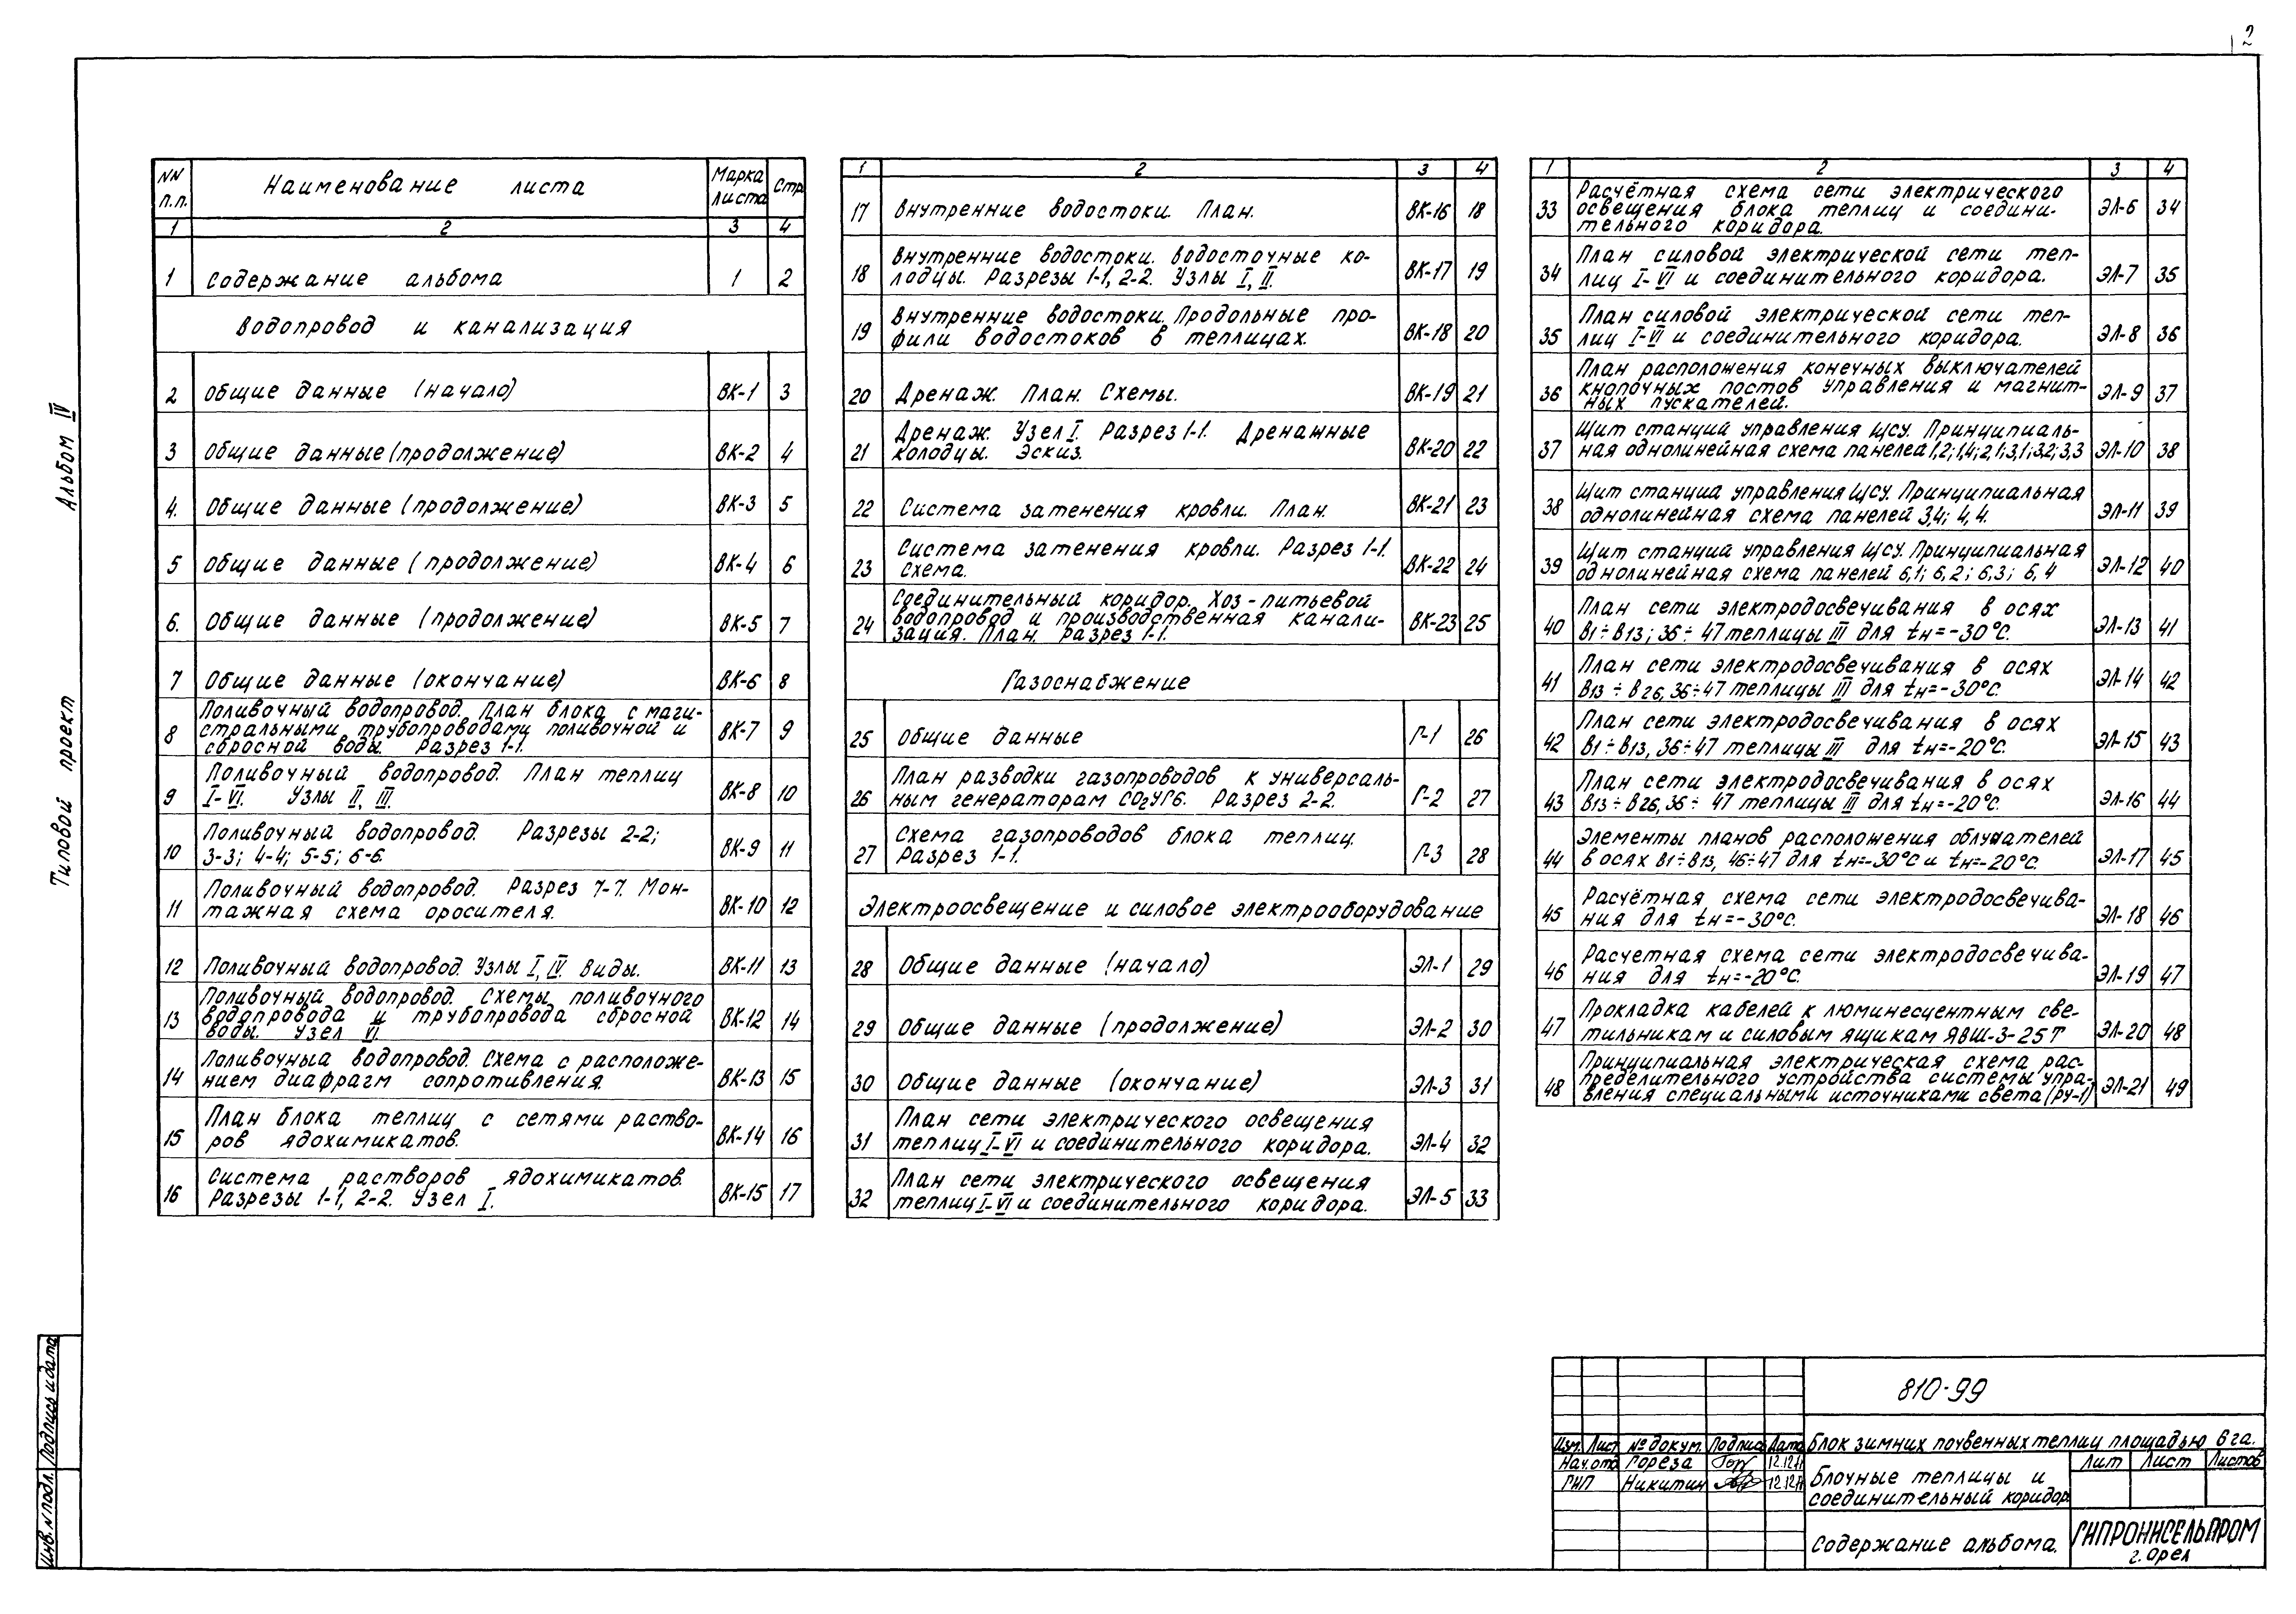 2
Альбом IV
Типовой проект
Инв. N подл. Подпись и дата
NN п.п. Наименование листа Марка листа Стр.
1 2 3 4
1 Содержание альбома 1 2
Водопровод и канализация
2 Общие данные (начало) ВК-1 3
3 Общие данные (продолжение) ВК-2 4
4. Общие данные (продолжение) ВК-3 5
5 Общие данные (продолжение) ВК-4 6
6. Общие данные (продолжение) ВК-5 7
7 Общие данные (окончание) ВК-6 8
8 Поливочный водопровод. План блока с маги-
стральными трубопроводами поливочной и
сбросной воды. Разрез 1-1. ВК-7 9
9 Поливочный водопровод. План теплиц
I-VI. Узлы II, III. ВК-8 10
10 Поливочный водопровод. Разрезы 2-2;
3-3; 4-4; 5-5; 6-6. ВК-9 11
11 Поливочный водопровод. Разрез 7-7. Мон-
тажная схема оросителя. ВК-10 12
12 Поливочный водопровод. Узлы I, IV. Виды. ВК-11 13
13 Поливочный водопровод. Схемы поливочного
водопровода и трубопровода сбросной
воды. Узел VI. ВК-12 14
14 Поливочный водопровод. Схема с расположе-
нием диафрагм сопротивления. ВК-13 15
15 План блока теплиц с сетями раство-
ров ядохимикатов. ВК-14 16
16 Система растворов ядохимикатов.
Разрезы 1-1, 2-2. Узел I. ВК-15 17
1 2 3 4
17 Внутренние водостоки. План. ВК-16 18
18 Внутренние водостоки. Водосточные ко-
лодцы. Разрезы 1-1, 2-2. Узлы I, II. ВК-17 19
19 Внутренние водостоки. Продольные про-
фили водостоков в теплицах. ВК-18 20
20 Дренаж. План. Схемы. ВК-19 21
21 Дренаж. Узел I. Разрез 1-1. Дренажные
колодцы. Эскиз. ВК-20 22
22 Система затенения кровли. План. ВК-21 23
23 Система затенения кровли. Разрез 1-1.
Схема. ВК-22 24
24 Соединительный коридор. Хоз-питьевой
водопровод и производственная канали-
зация. План. Разрез 1-1. ВК-23 25
Газоснабжение
25 Общие данные Г-1 26
26 План разводки газопроводов к универсаль-
ным генераторам СО2УГ6. Разрез 2-2. Г-2 27
27 Схема газопроводов блока теплиц.
Разрез 1-1. Г-3 28
Электроосвещение и силовое электрооборудование
28 Общие данные (начало) ЭЛ-1 29
29 Общие данные (продолжение) ЭЛ-2 30
30 Общие данные (окончание) ЭЛ-3 31
31 План сети электрического освещения
теплиц I-VI и соединительного коридора. ЭЛ-4 32
32 План сети электрического освещения
теплиц I-VI и соединительного коридора. ЭЛ-5 33
1 2 3 4
33 Расчётная схема сети электрического
освещения блока теплиц и соедини-
тельного коридора. ЭЛ-6 34
34 План силовой электрической сети теп-
лиц I-VI и соединительного коридора. ЭЛ-7 35
35 План силовой электрической сети теп-
лиц I-VI и соединительного коридора. ЭЛ-8 36
36 План расположения конечных выключателей
кнопочных постов управления и магнит-
ных пускателей. ЭЛ-9 37
37 Щит станций управления ЩСУ. Принципиаль-
ная однолинейная схема панелей 1,2; 1,4; 2,1; 3,1; 3,2; 3,3 ЭЛ-10 38
38 Щит станций управления ЩСУ. Принципиальная
однолинейная схема панелей 3,4; 4,4. ЭЛ-11 39
39 Щит станций управления ЩСУ. Принципиальная
однолинейная схема панелей 6,1; 6,2; 6,3; 6,4 ЭЛ-12 40
40 План сети электродосвечивания в осях
В1÷В13; 36÷47 теплицы III для tн=-30°С. ЭЛ-13 41
41 План сети электродосвечивания в осях
В13÷В26, 36÷47 теплицы III для tн=-30°С. ЭЛ-14 42
42 План сети электродосвечивания в осях
В1÷В13, 36÷47 теплицы III для tн=-20°С. ЭЛ-15 43
43 План сети электродосвечивания в осях
В13÷В26, 36÷47 теплицы III для tн=-20°С. ЭЛ-16 44
44 Элементы планов расположения облучателей
в осях В1÷В13, 46÷47 для tн=-30°С и tн=-20°С. ЭЛ-17 45
45 Расчётная схема сети электродосвечива-
ния для tн=-30°С. ЭЛ-18 46
46 Расчетная схема сети электродосвечива-
ния для tн=-20°С. ЭЛ-19 47
47 Прокладка кабелей к люминесцентным све-
тильникам и силовым ящикам ЯВШ-3-25Т ЭЛ-20 48
48 Принципиальная электрическая схема рас-
пределительного устройства системы упра-
вления специальными источниками света (РУ-1) ЭЛ-21 49
810-99
Изм. Лист № докум. Подпись Дата
Нач. отд Гореза
ГИП Никитин
Блок зимних почвенных теплиц площадью 6 га.
Блочные теплицы и
соединительный коридор.
Лит Лист Листов
Содержание альбома.
ГИПРОНИСЕЛЬПРОМ
г. Орел